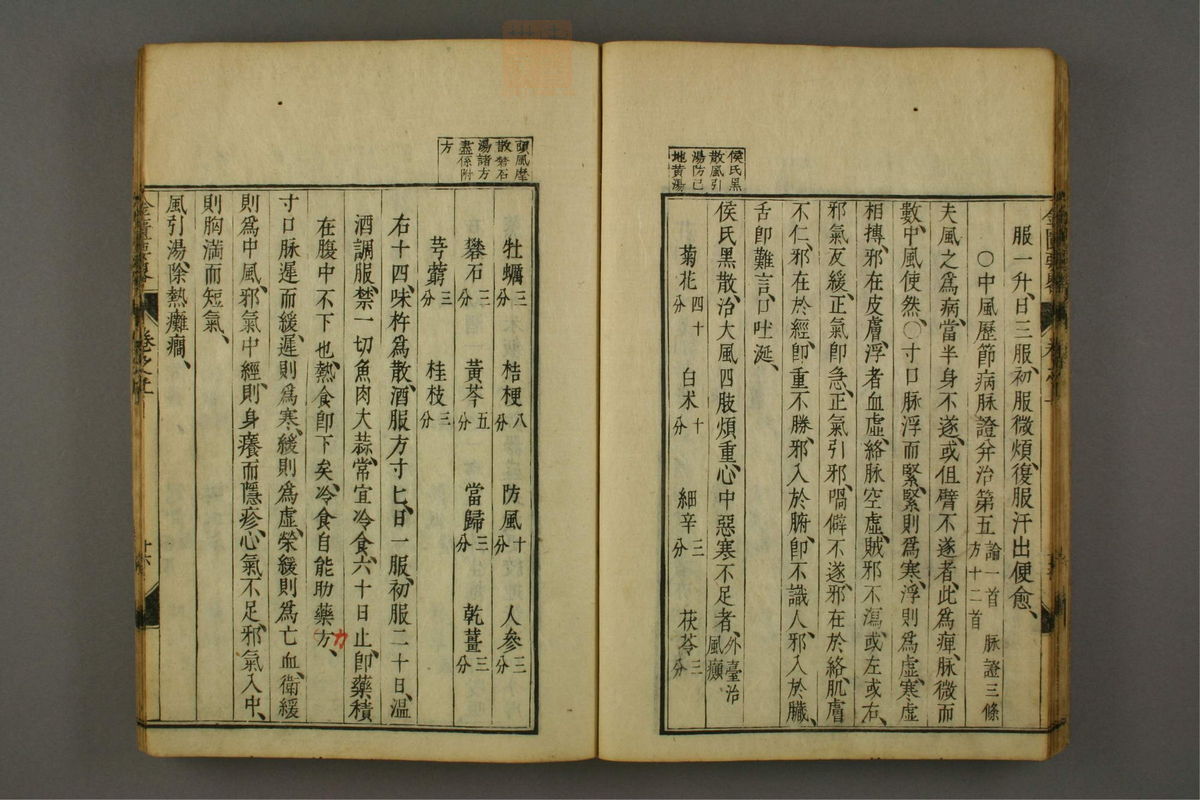 侯氏黑
散風引
湯防已
地黃湯
服一升、日三服、初服微煩、復服汗出便愈、
○中風歷節病脉證并治第五
論一首 脉證三條
方十二首
夫風之爲病、當半身不遂、或但臂不遂者、此爲痺、脉微而
數、中風使然、○寸口脉浮而緊、緊則爲寒、浮則爲虛、寒虛
相搏、邪在皮膚、浮者血虛、絡脉空虛、賊邪不瀉、或左或右、
邪氣反緩、正氣即急、正氣引邪、喎僻不遂、邪在於絡、肌膚
不仁、邪在於經、即重不勝、邪入於腑、即不識人、邪入於臟、
舌即難言、口吐涎、
侯氏黑散、治大風四肢煩重、心中惡寒不足者、
外臺治
風癲
菊花四十分 白朮十分 細辛三分 茯苓三分
頭風摩
散礬石
湯諸方
蓋係附
方
牡蠣三分 桔梗八分 防風十分 人參三分
礬石三分 黃芩五分 當歸三分 乾薑三分
芎藭三分 桂枝三分
右十四味、杵爲散、酒服方寸匕、日一服、初服二十日、溫
酒調服、禁一切魚肉大蒜、常宜冷食、六十日止、即藥積
在腹中不下也、熱食即下矣、冷食自能助藥方、
力
寸口脉遲而緩、遲則爲寒、緩則爲虛、榮緩則爲亡血、衛緩
則爲中風、邪氣中經、則身癢而隱疹、心氣不足、邪氣入中、
則胸滿而短氣、
風引湯、除熱癱癇、
金匱要略
卷之上
十六